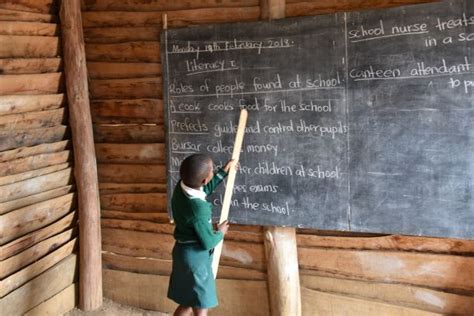 Monday 19th February 2018.
Literacy I
Roles of people found at school
A cook cooks food for the school
Prefects guide and control other pupils
Bursar collects money
other children at school
types exams
clean the school
school nurse treats
in a
canteen attendant
to